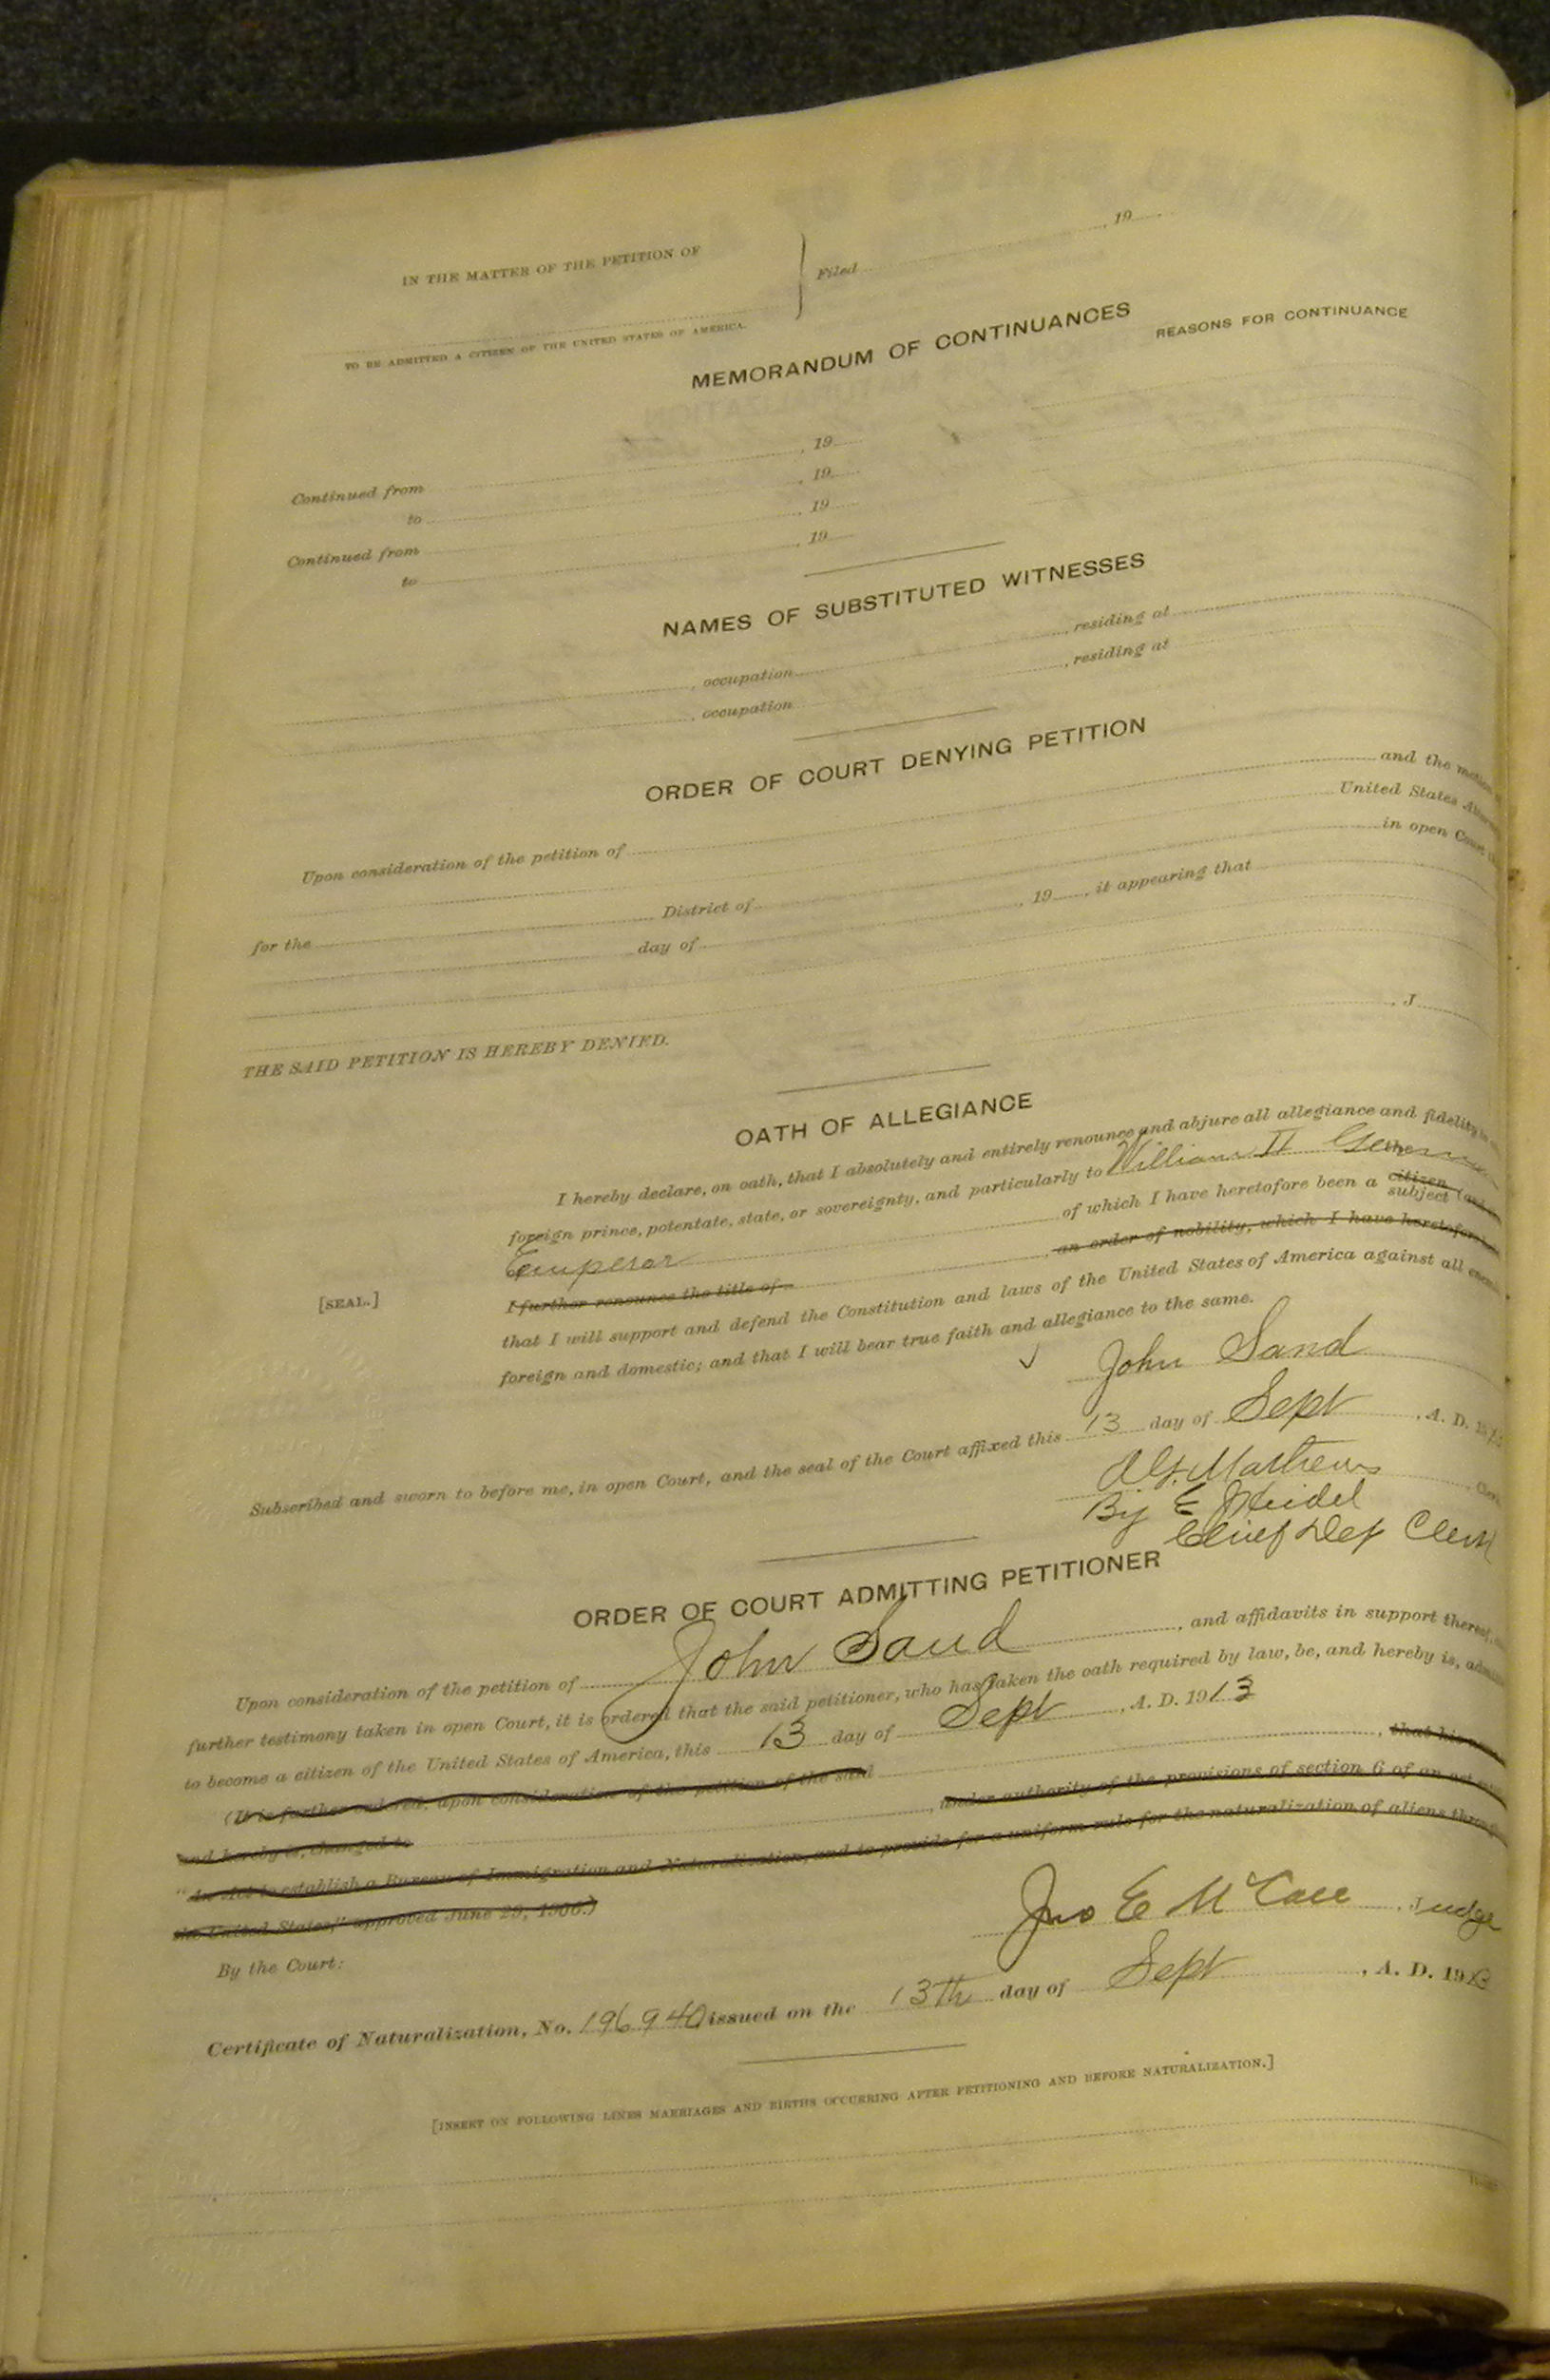 IN THE MATTER OF THE PETITION OF
Filed , 19
TO BE ADMITTED A CITIZEN OF THE UNITED STATES OF AMERICA.
MEMORANDUM OF CONTINUANCES
REASONS FOR CONTINUANCE
Continued from , 19
to , 19
Continued from , 19
to , 19
NAMES OF SUBSTITUTED WITNESSES
, occupation , residing at
, occupation , residing at
ORDER OF COURT DENYING PETITION
Upon consideration of the petition of and the motion
United States
for the District of in open Court
day of , 19 , it appearing that
THE SAID PETITION IS HEREBY DENIED.
, J
OATH OF ALLEGIANCE
I hereby declare, on oath, that I absolutely and entirely renounce and abjure all allegiance and fidelity
foreign prince, potentate, state, or sovereignty, and particularly to William II German
Emperor of which I have heretofore been a citizen subject
I further renounce the title of , an order of nobility, which I have heretofore
[SEAL.]
that I will support and defend the Constitution and laws of the United States of America against all
foreign and domestic; and that I will bear true faith and allegiance to the same.
✓ John Sand
Subscribed and sworn to before me, in open Court, and the seal of the Court affixed this 13 day of Sept , A. D.
Mathews
By E
Chief Dep Clerk
ORDER OF COURT ADMITTING PETITIONER
Upon consideration of the petition of John Sand , and affidavits in support thereof,
further testimony taken in open Court, it is ordered that the said petitioner, who has taken the oath required by law, be, and hereby is,
to become a citizen of the United States of America, this 13 day of Sept , A. D. 1913
(It is further ordered, upon consideration of the petition of the said , that his
and hereby is, changed to , under authority of the provisions of section 6 of an act
"An Act to establish a Bureau of Immigration and Naturalization, and to provide for a uniform rule for the naturalization of aliens
the United States," approved June 29, 1906.)
By the Court:
Jno E McCall , Judge
Certificate of Naturalization, No. 196940 issued on the 13th day of Sept , A. D. 1913
[INSERT ON FOLLOWING LINES MARRIAGES AND BIRTHS OCCURRING AFTER PETITIONING AND BEFORE NATURALIZATION.]